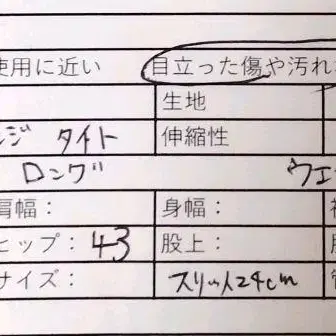 使用に近い 目立った傷や汚れ
生地
ンジ タイト 伸縮性
ロング ウエ
肩幅： 身幅：
ヒップ： 43 股上：
サイズ： スリット24cm